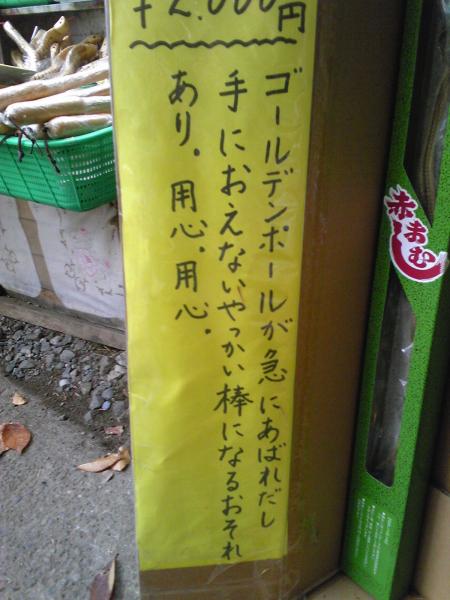 ¥2.000円
ゴールデンポールが急にあばれだし
手におえないやっかい棒になるおそれ
あり。用心。用心。
赤まむし